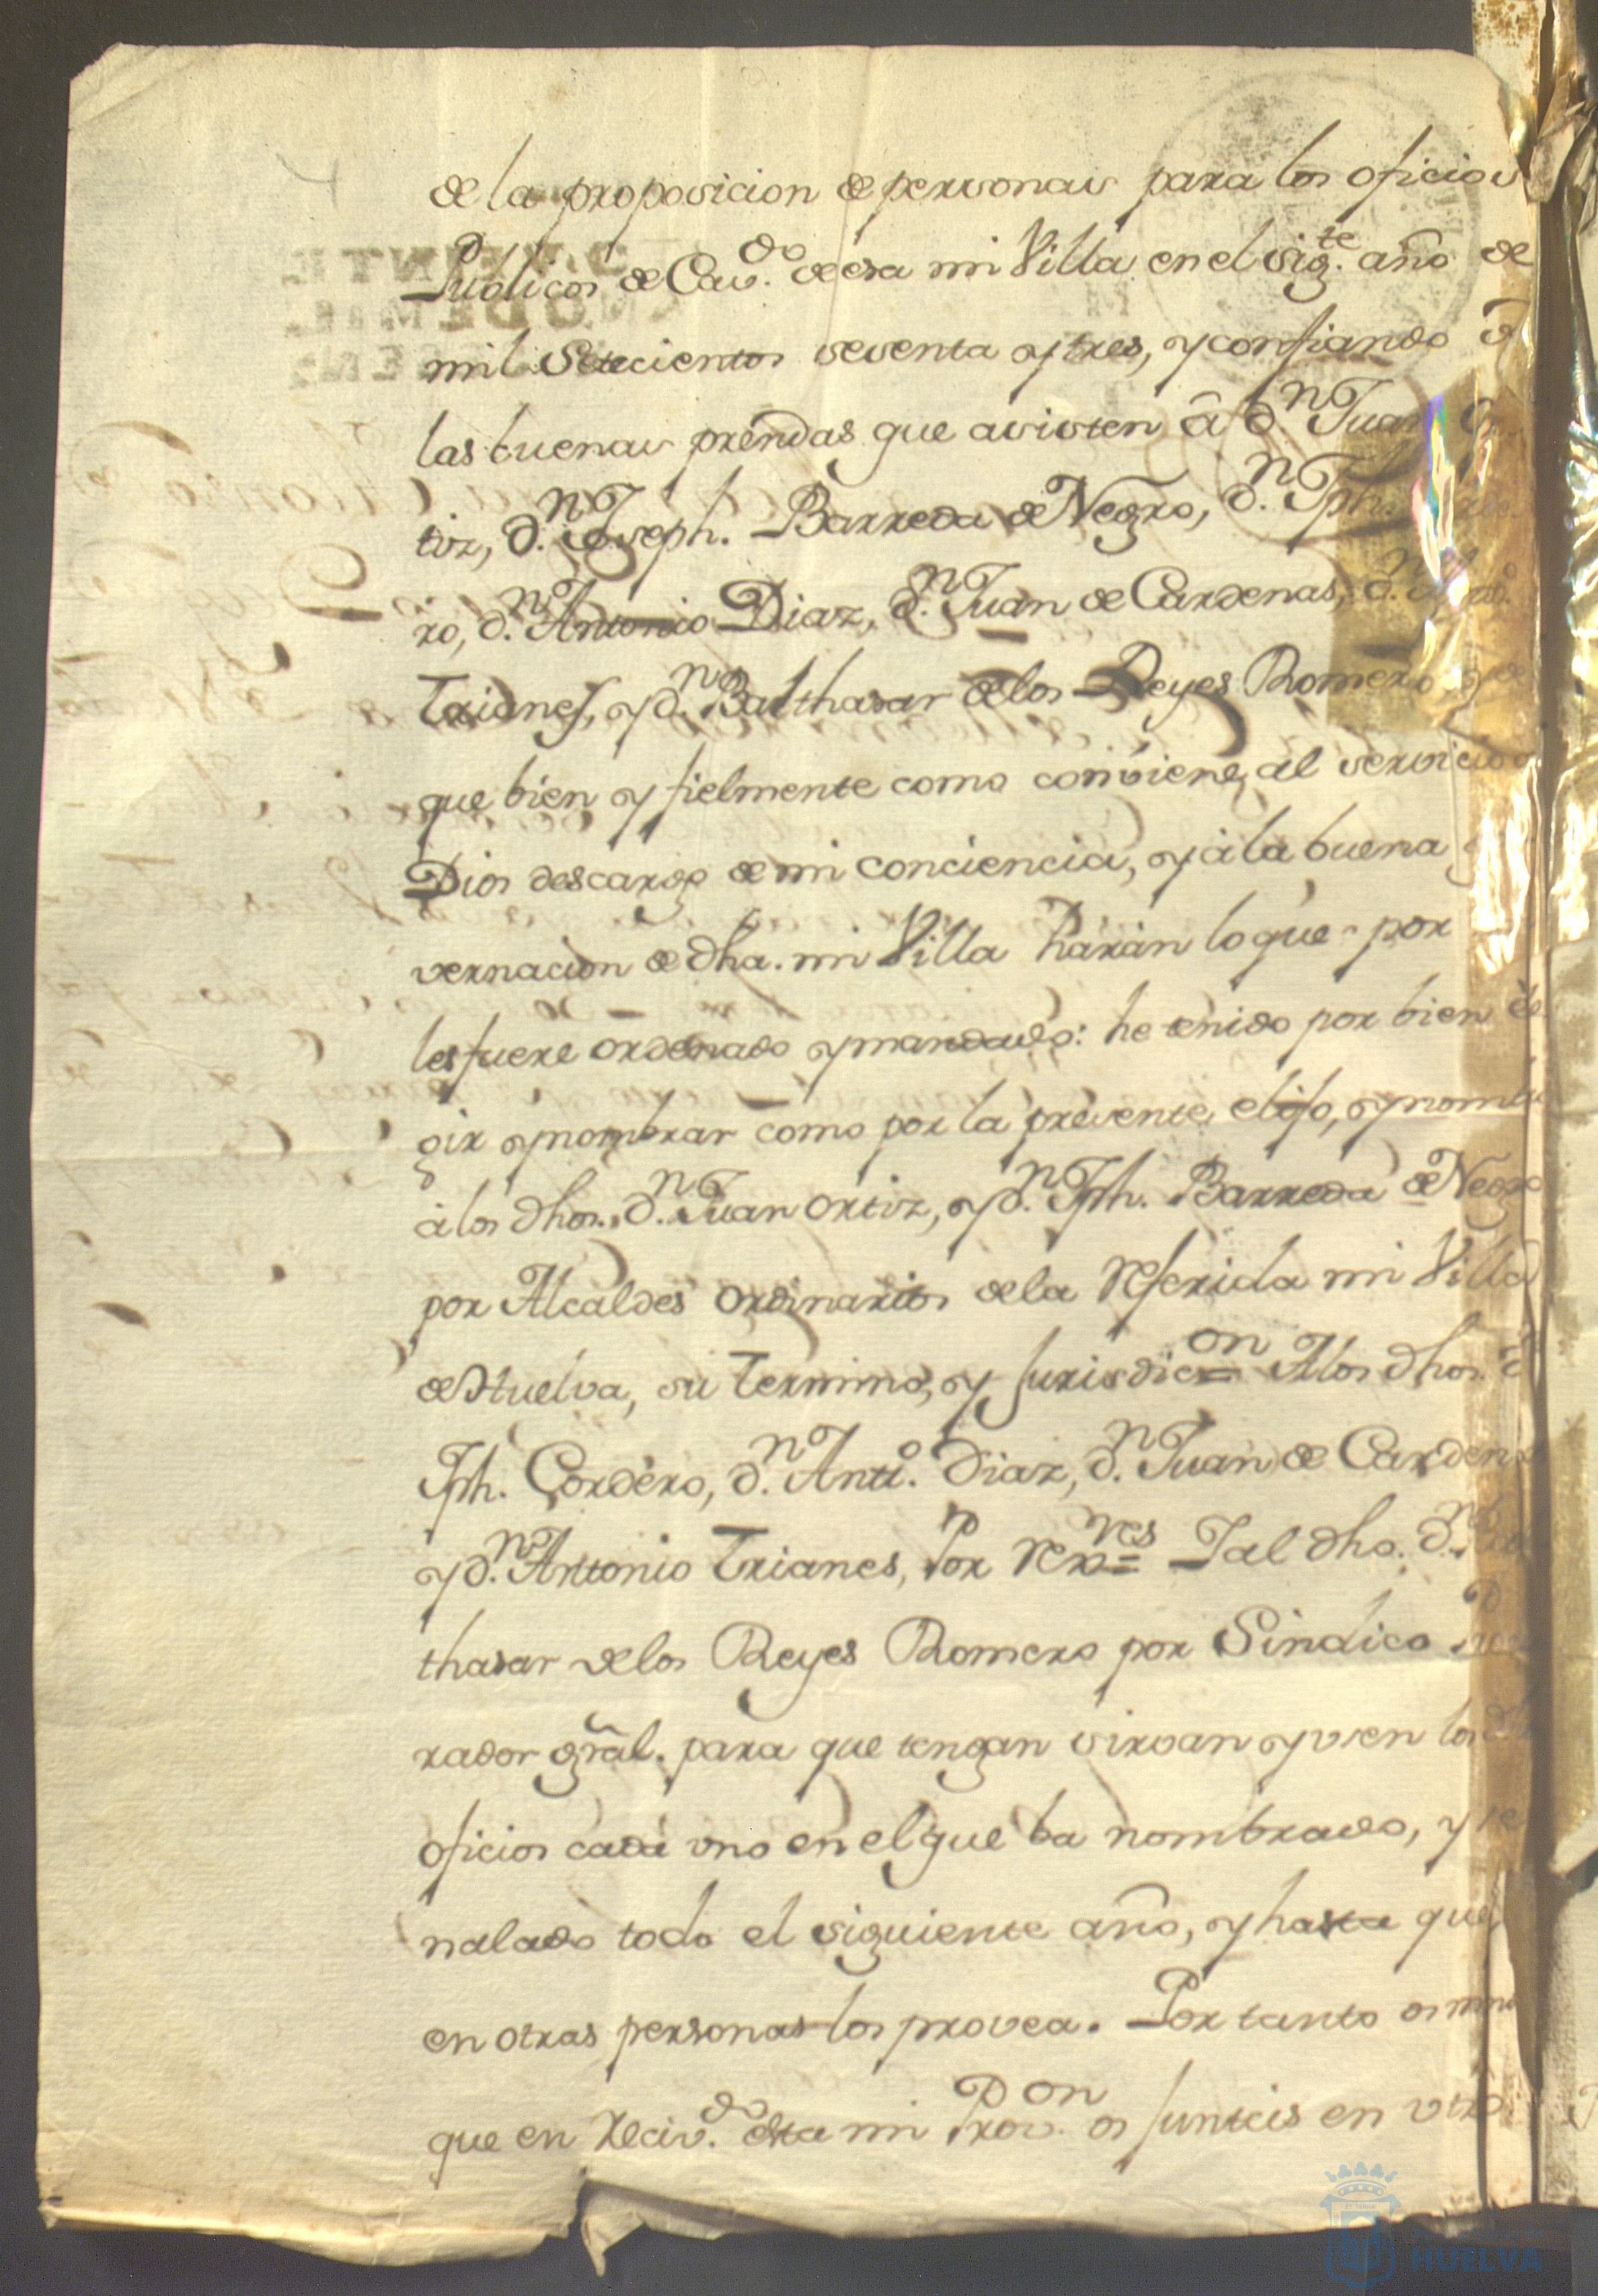 de la proposicion de personas para los oficios
Publicos de Cav.do de esa mi Villa en el sig.te año de
mil Setecientos sesenta y tres, y confiando de
las buenas prendas que asisten â d.n Juan Or
tiz, d.n Joseph. Barreda de Negro, d.n Jph.
ro, d.n Antonio Diaz, d.n Juan de Cardenas, d.n
Trianes, y d.n Balthasar de los Reyes Romero
que bien y fielmente como conviene al servicio
Dios descargo de mi conciencia, y à la buena
vernacion de dha. mi Villa haràn lo que por
les fuere ordenado y mandado: he tenido por bien de
gir y nombrar como por la presente elijo, y nomb
à los dhos. d.n Juan Ortiz, y d.n Jph. Barreda de Negro
por Alcaldes ordinarios de la referida mi Villa
de Huelva, su termino, y Jurisdic.on = A los dhos. d
Jph. Cordero, d.n Antt.o Diaz, d.n Juan de Carden
y d.n Antonio Trianes, Por Rex.res = I al dho. d.n
thasar de los Reyes Romero por Sindico
rador grâl. para que tengan sirvan y usen los
oficios cada uno en el que ba nombrado, y se
nalado todo el siguiente año, y hasta que
en otras personas los provea. Por tanto os man
que en Reciv.do esta mi Prov.on os Junteis en vtro.
HUELVA